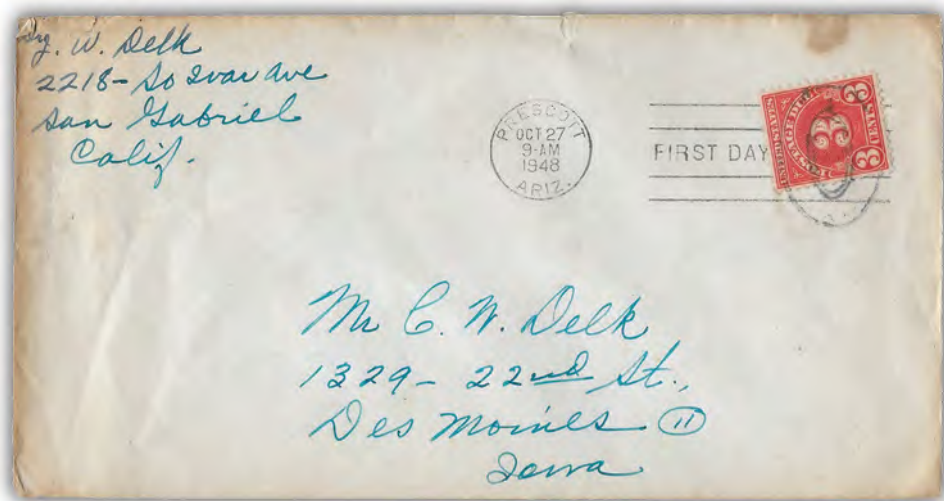 W. Delk
2218- So Ivar Ave
San Gabriel
Calif.
PRESCOTT
OCT 27
9-AM
1948
ARIZ.
FIRST DAY
3 CENTS 3
POSTAGE DUE
UNITED STATES
Mr C. W. Delk
1329- 22nd St.,
Des Moines 11
Iowa